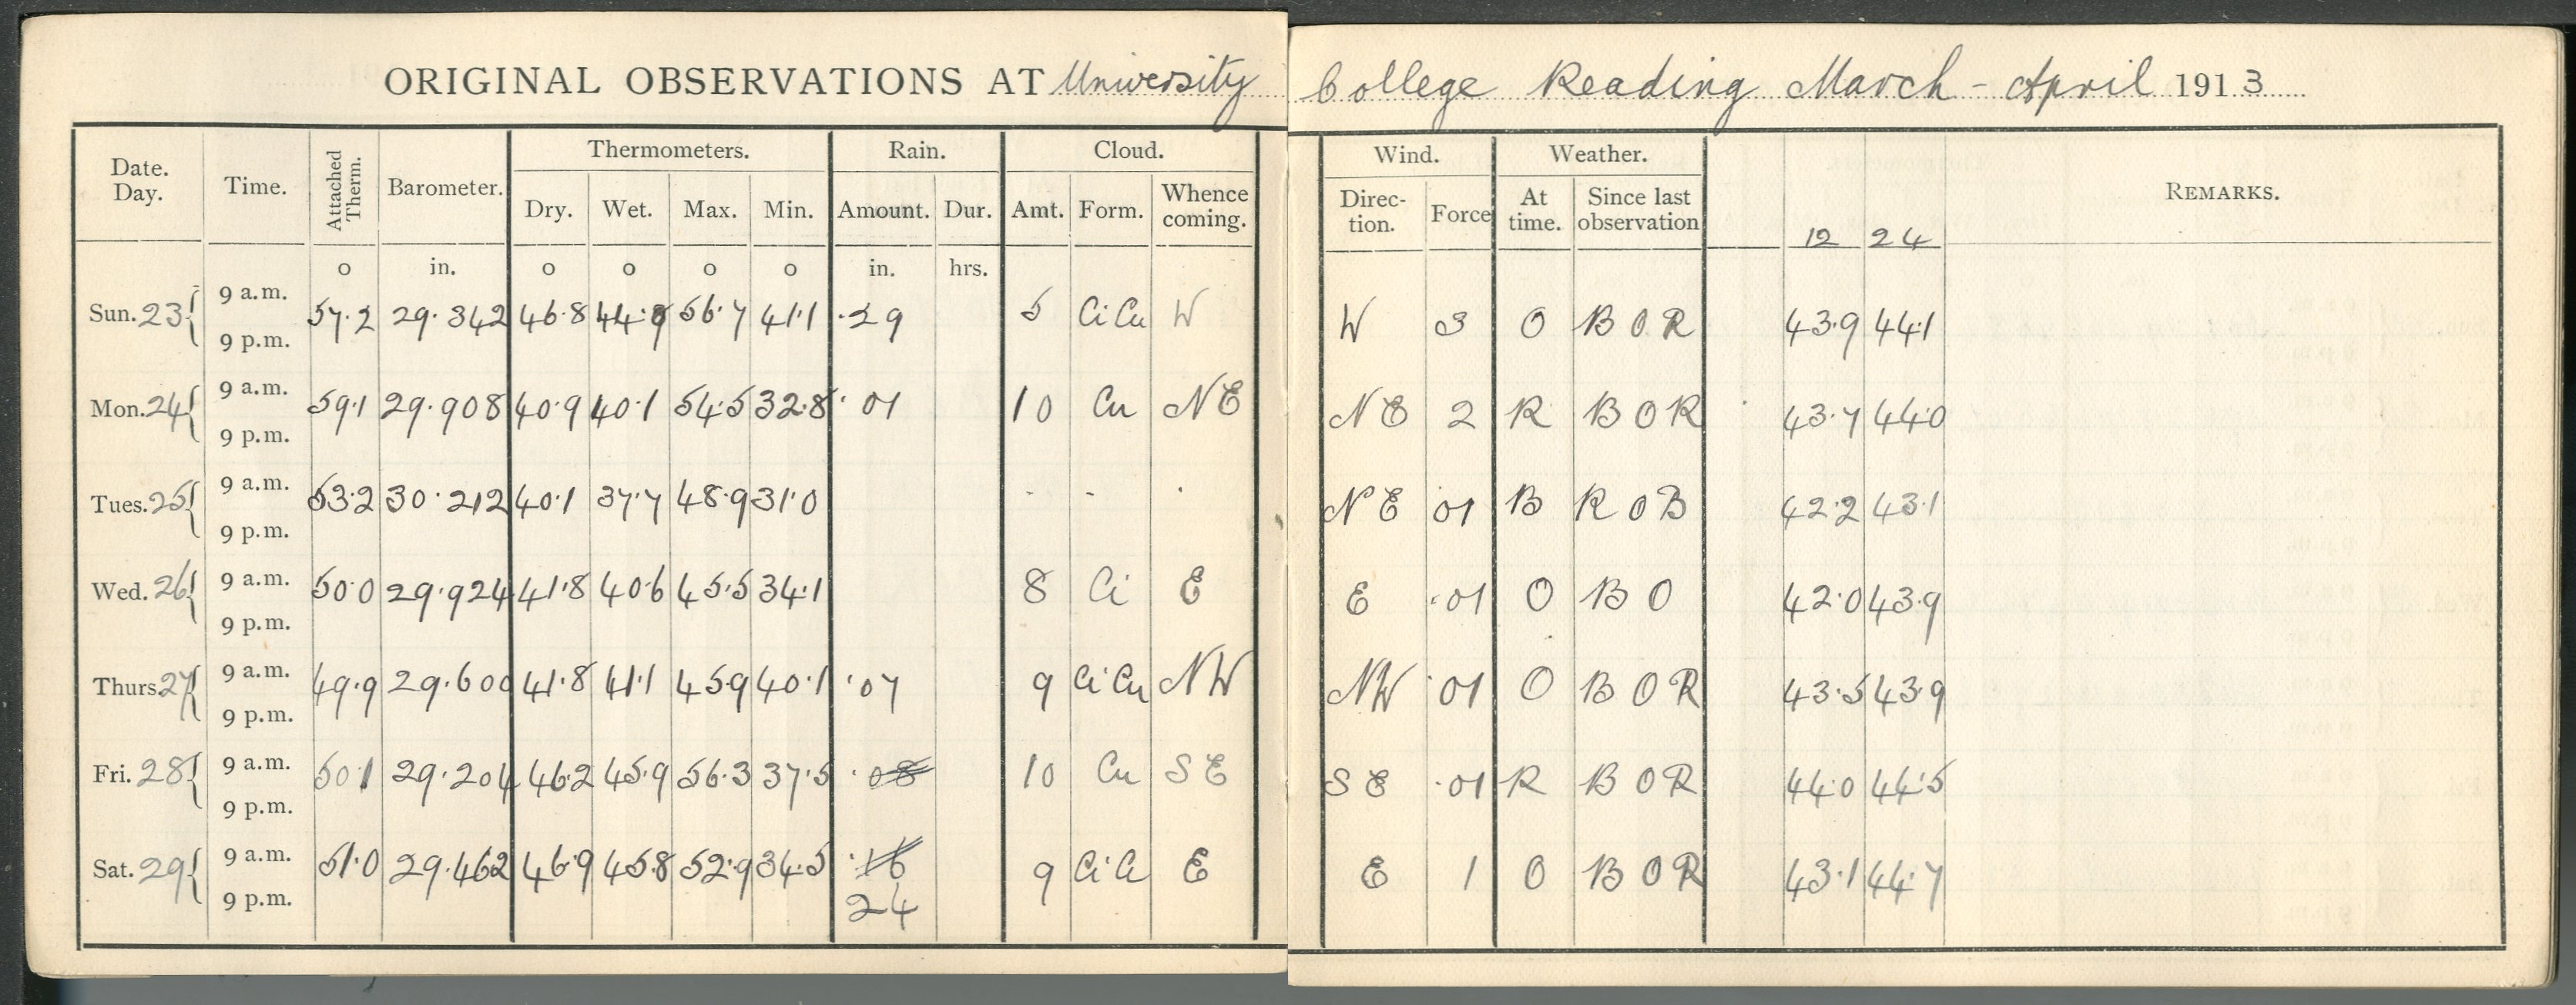 ORIGINAL OBSERVATIONS AT University College Reading March - April 1913
Thermometers. Rain. Cloud. Wind. Weather.
Date. Day. Time. Attached Therm. Barometer. Dry. Wet. Max. Min. Amount. Dur. Amt. Form. Whence coming. Direc-tion. Force At time. Since last observation 12 24 REMARKS.
o in. o o o o in. hrs.
9 a.m.
Sun. 23 57.2 29.342 46.8 56.7 41.1 .29 5 CiCu W W 3 O B O R 43.9 44.1
9 p.m.
9 a.m.
Mon. 24 59.1 29.908 40.9 40.1 54.5 32.8 .01 10 Cu NE NE 2 R B O R 43.7 44.0
9 p.m.
9 a.m.
Tues. 25 53.2 30.212 40.1 37.7 48.9 31.0 - - . NE 01 B R O B 42.2 43.1
9 p.m.
9 a.m.
Wed. 26 50.0 29.924 41.8 40.6 45.5 34.1 8 Ci E E .01 O B O 42.0 43.9
9 p.m.
9 a.m.
Thurs. 27 49.9 29.600 41.8 41.1 45.9 40.1 .07 9 CiCu NW NW .01 O B O R 43.5 43.9
9 p.m.
9 a.m.
Fri. 28 50.1 29.204 46.2 45.9 56.3 37.5 .08 10 Cu SE SE .01 R B O R 44.0 44.5
9 p.m.
9 a.m.
Sat. 29 51.0 29.462 46.9 45.8 52.9 34.5 .16 9 CiCu E E 1 O B O R 43.1 44.7
9 p.m. 24